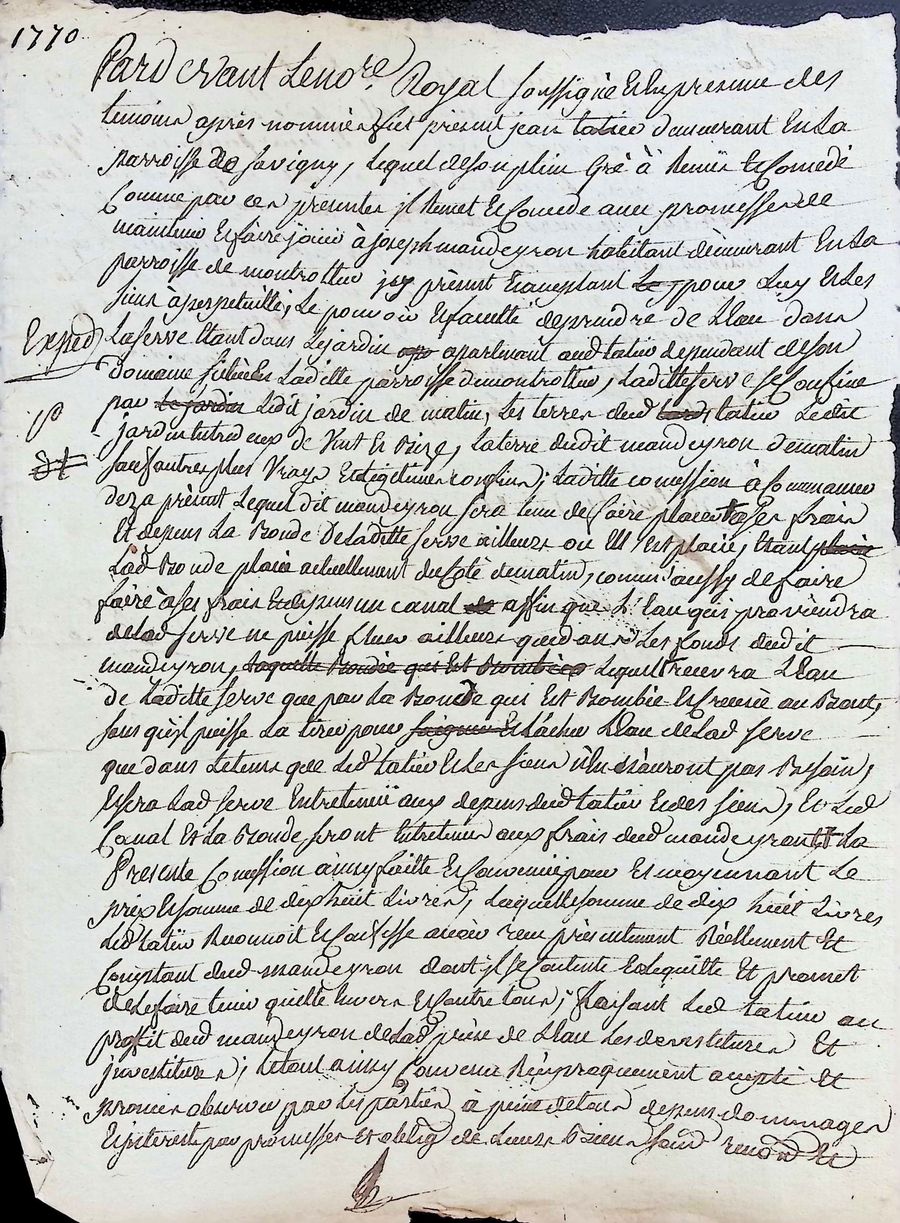 1770
Pardevant Le nore. Royal soussigné Et En presence des
temoins après nommés fut présent jean tatieu demeurant En La
parroisse de savigny, Lequel de son plein Gré à Remis Et Concedé
Comme par ces presentes jl Remet Et Concede avec promesse de
maintenir Et faire jouir à joseph mandeyron habitant demeurant En La
parroisse de montrottier jcy présent Et acceptant pour Luy Et Les
siens à perpetuitté, Le pouvoir Et faculté de prendre de L'eau dans
Exped
La serve Etant dans Le jardin apartenant aud tatieu dependant de son
Domaine situé En Laditte parroisse de montrottier, Laditte serve se Confine
par Le jardin Ledit jardin de matin, Les terres dud tatieu Ledit
jardin Entre deux de Vent Et Bize, La terre dudit mandeyron de matin
sauf autres plus Vrays Et Legitimes confins, Laditte concession à Commancer
dez a présent Lequel dit mandeyron sera tenu de faire placer à ses frais
Et depens La Bonde De Laditte serve ailleurs ou Ell' Est placée, Etant
Lad Bonde placée actuellement du Coté de matin, comm'aussy de faire
faire à ses frais Et depens un canal affin que L'Eau qui proviendra
de Lad serve ne puisse fluer ailleurs que dans Les fonds dudit
mandeyron, Laquelle Bondée qui Est Bombée Lequel recevra L'Eau
de Laditte serve que par La Bonde qui Est Bombée Et Creusée au Bout,
sans qu'il puisse La tirer pour L'Eau de Lad serve
que dans Le tems que Led tatieu Et Les siens n'En auront pas Besoin,
Et sera Lad serve Entretenuë aux depens dud tatieu Et des siens, Et Led
Canal Et La Bonde, seront Entretenus aux frais dud mandeyron Et La
Presente Concession ainsy faitte Et Convenuë pour Et moyennant Le
prix Et somme de dix huit Livres, Laquelle somme de dix huit Livres
Led tatieu Reconnoit Et Confesse avoir reçu présentement Réellement Et
Comptant dud mandeyron dont jl se Contente Et Le quitte Et promet
de Le faire tenir quitte Envers Et Contre tous, faisant Led tatieu au
proffit dud mandeyron de Lad prise de L'Eau Les devestitures Et
jnvestitures, Le tout ainsy Convenu Réciproquement accepté Et
promis observer par Les parties à peine de tous depens dommages
Et jnterests par promesses Et oblig de Leurs Biens soum renon Et